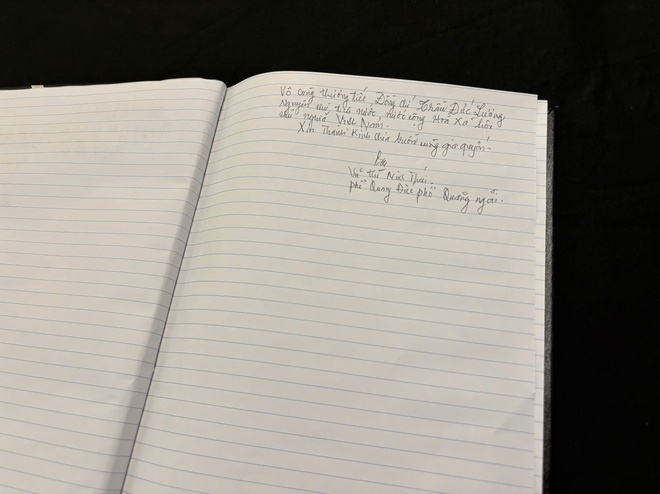 Vô cùng thương tiếc, Đồng chí Trần Đức Lương
Nguyên chủ tịch nước, nước cộng Hoà Xã hội
chủ nghĩa Việt Nam.
Xin Thành Kính chia buồn cùng gia quyến.
Vũ thị
phố Quang phố Quảng ngãi.